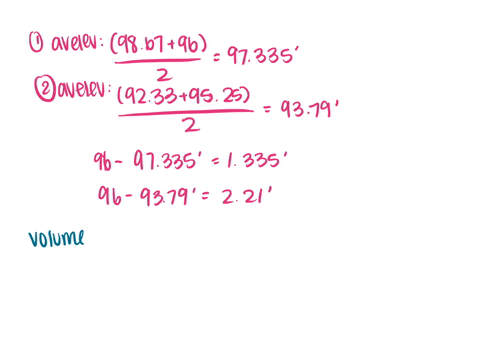 ① avelev: (98.67+96)/2 = 97.335'
② avelev: (92.33+95.25)/2 = 93.79'
96 - 97.335' = 1.335'
96 - 93.79' = 2.21'
volume